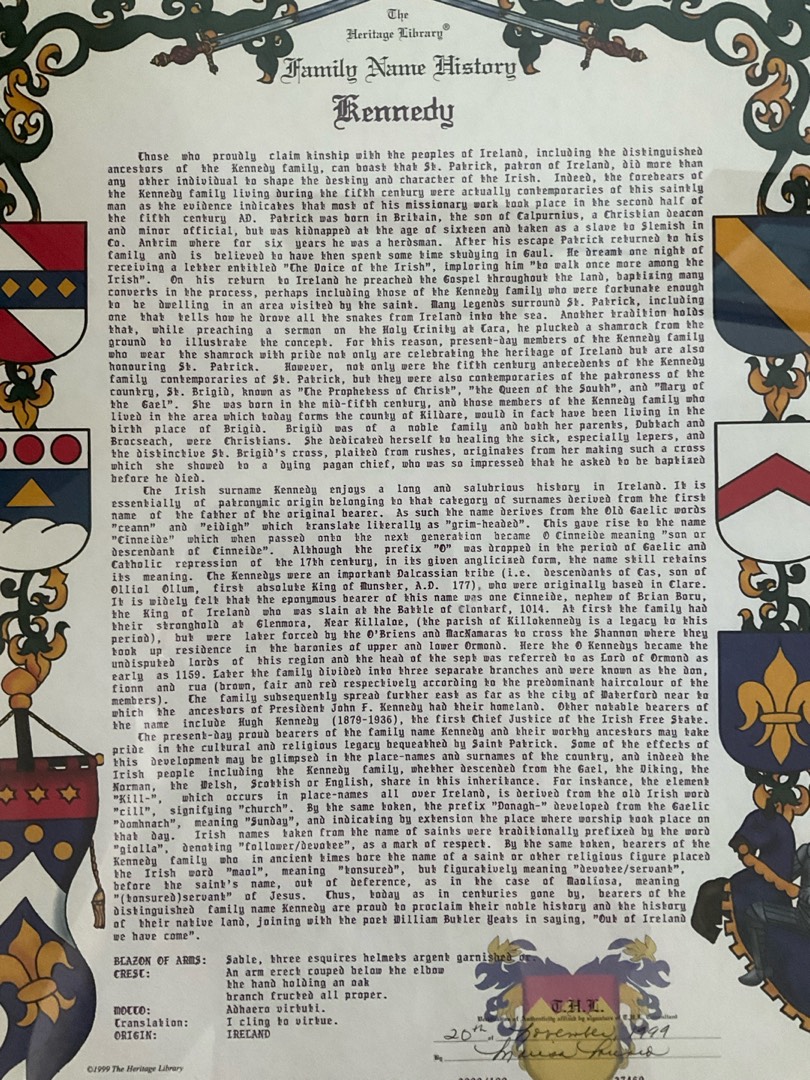 The
Heritage Library®
Family Name History
Kennedy
Those who proudly claim kinship with the peoples of Ireland, including the distinguished
ancestors of the Kennedy family, can boast that St. Patrick, patron of Ireland, did more than
any other individual to shape the destiny and character of the Irish. Indeed, the forebears of
the Kennedy family living during the fifth century were actually contemporaries of this saintly
man as the evidence indicates that most of his missionary work took place in the second half of
the fifth century AD. Patrick was born in Britain, the son of Calpurnius, a Christian deacon
and minor official, but was kidnapped at the age of sixteen and taken as a slave to Slemish in
Co. Antrim where for six years he was a herdsman. After his escape Patrick returned to his
family and is believed to have then spent some time studying in Gaul. He dreamt one night of
receiving a letter entitled "The Voice of the Irish", imploring him "to walk once more among the
Irish". On his return to Ireland he preached the Gospel throughout the land, baptizing many
converts in the process, perhaps including those of the Kennedy family who were fortunate enough
to be dwelling in an area visited by the saint. Many legends surround St. Patrick, including
one that tells how he drove all the snakes from Ireland into the sea. Another tradition holds
that, while preaching a sermon on the Holy Trinity at Tara, he plucked a shamrock from the
ground to illustrate the concept. For this reason, present-day members of the Kennedy family
who wear the shamrock with pride not only are celebrating the heritage of Ireland but are also
honouring St. Patrick. However, not only were the fifth century antecedents of the Kennedy
family contemporaries of St. Patrick, but they were also contemporaries of the patroness of the
country, St. Brigid, known as "The Prophetess of Christ", "the Queen of the South", and "Mary of
the Gael". She was born in the mid-fifth century, and those members of the Kennedy family who
lived in the area which today forms the county of Kildare, would in fact have been living in the
birth place of Brigid. Brigid was of a noble family and both her parents, Dubtach and
Brocseach, were Christians. She dedicated herself to healing the sick, especially lepers, and
the distinctive St. Brigid's cross, plaited from rushes, originates from her making such a cross
which she showed to a dying pagan chief, who was so impressed that he asked to be baptized
before he died.
The Irish surname Kennedy enjoys a long and salubrious history in Ireland. It is
essentially of patronymic origin belonging to that category of surnames derived from the first
name of the father of the original bearer. As such the name derives from the Old Gaelic words
"ceann" and "eidigh" which translate literally as "grim-headed". This gave rise to the name
"Cinneide" which when passed onto the next generation became O Cinneide meaning "son or
descendant of Cinneide". Although the prefix "O" was dropped in the period of Gaelic and
Catholic repression of the 17th century, in its given anglicized form, the name still retains
its meaning. The Kennedys were an important Dalcassian tribe (i.e. descendants of Cas, son of
Olliol Ollum, first absolute King of Munster, A.D. 177), who were originally based in Clare.
It is widely felt that the eponymous bearer of this name was one Cinneide, nephew of Brian Boru,
the King of Ireland who was slain at the Battle of Clontarf, 1014. At first the family had
their stronghold at Glenmora, Near Killaloe, (the parish of Killokennedy is a legacy to this
period), but were later forced by the O'Briens and MacNamaras to cross the Shannon where they
took up residence in the baronies of upper and lower Ormond. Here the O Kennedys became the
undisputed lords of this region and the head of the sept was referred to as Lord of Ormond as
early as 1159. Later the family divided into three separate branches and were known as the don,
fionn and rua (brown, fair and red respectively according to the predominant haircolour of the
members). The family subsequently spread further east as far as the city of Waterford near to
which the ancestors of President John F. Kennedy had their homeland. Other notable bearers of
the name include Hugh Kennedy (1879-1936), the first Chief Justice of the Irish Free State.
The present-day proud bearers of the family name Kennedy and their worthy ancestors may take
pride in the cultural and religious legacy bequeathed by Saint Patrick. Some of the effects of
this development may be glimpsed in the place-names and surnames of the country, and indeed the
Irish people including the Kennedy family, whether descended from the Gael, the Viking, the
Norman, the Welsh, Scottish or English, share in this inheritance. For instance, the element
"Kill-", which occurs in place-names all over Ireland, is derived from the old Irish word
"cill", signifying "church". By the same token, the prefix "Donagh-" developed from the Gaelic
"domhnach", meaning "Sunday", and indicating by extension the place where worship took place on
that day. Irish names taken from the name of saints were traditionally prefixed by the word
"giolla", denoting "follower/devotee", as a mark of respect. By the same token, bearers of the
Kennedy family who in ancient times bore the name of a saint or other religious figure placed
the Irish word "maol", meaning "tonsured", but figuratively meaning "devotee/servant",
before the saint's name, out of deference, as in the case of Maoliosa, meaning
"(tonsured)servant" of Jesus. Thus, today as in centuries gone by, bearers of the
distinguished family name Kennedy are proud to proclaim their noble history and the history
of their native land, joining with the poet William Butler Yeats in saying, "Out of Ireland
we have come".
BLAZON OF ARMS: Sable, three esquires helmets argent garnished or.
CREST: An arm erect couped below the elbow
the hand holding an oak
branch fructed all proper.
MOTTO: Adhaero virtuti.
Translation: I cling to virtue.
ORIGIN: IRELAND
T.H.L.
of Authenticity affixed by signature of T.H.L.
20th of November 1999
By
©1999 The Heritage Library